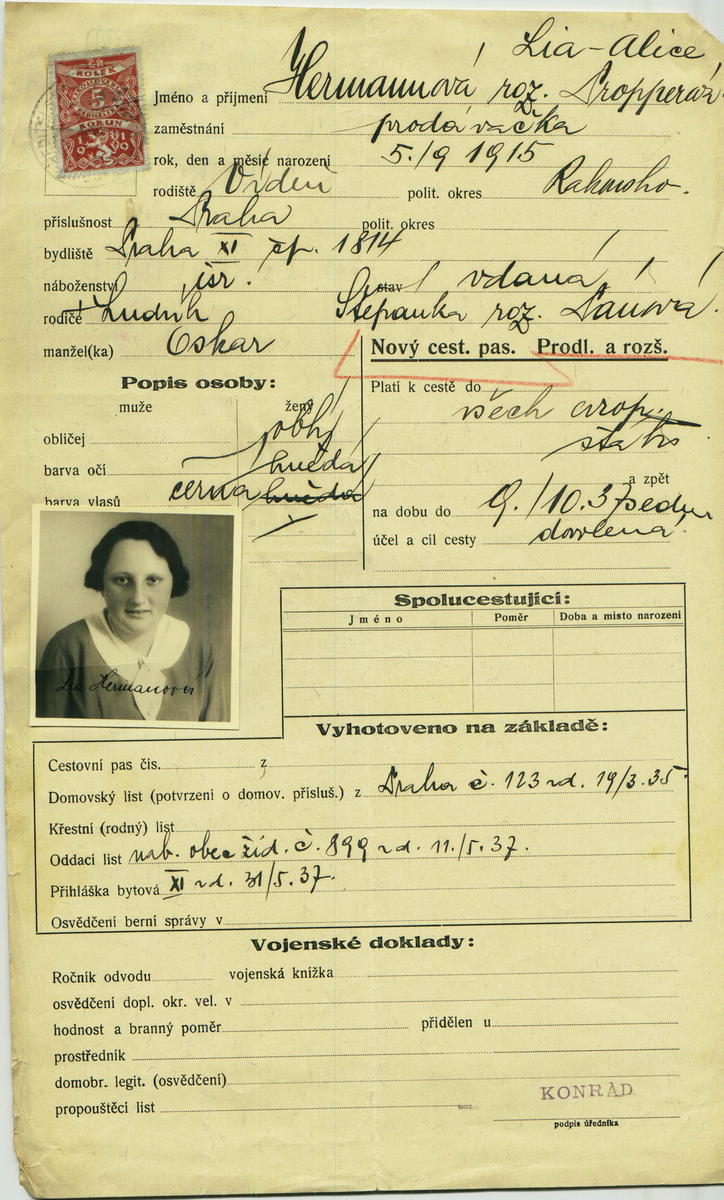 KOLEK
5
KORUN
1919
Lia-Alice
Jméno a příjmení Hermannová roz. Propperová
zaměstnání prodavačka
rok, den a měsíc narození 5./9 1915
rodiště Vídeň polit. okres Rakousko.
příslušnost Praha polit. okres
bydliště Praha XI čp. 1814
náboženství isr. stav vdaná
rodiče Ludvík Štěpánka roz.
manžel(ka) Oskar
Nový cest. pas. Prodl. a rozš.
Popis osoby:
muže ženy
Platí k cestě do všech evrop.
států
obličej obl.
barva očí hnědá
barva vlasů černá hnědá
a zpět
na dobu do 9./10.37
účel a cíl cesty dovolená
Lia Hermanová
Spolucestující:
Jméno Poměr Doba a místo narození
Vyhotoveno na základě:
Cestovní pas čís. z
Domovský list (potvrzení o domov. přísluš.) z Praha č. 123 zd. 19/3.35
Křestní (rodný) list
Oddací list náb. obec žid. č. 899 zd. 11./5.37.
Přihláška bytová XI zd. 31/5.37.
Osvědčení berní správy v
Vojenské doklady:
Ročník odvodu vojenská knížka
osvědčení dopl. okr. vel. v
hodnost a branný poměr přidělen u
prostředník
domobr. legit. (osvědčení)
propouštěcí list
KONRÁD
podpis úředníka